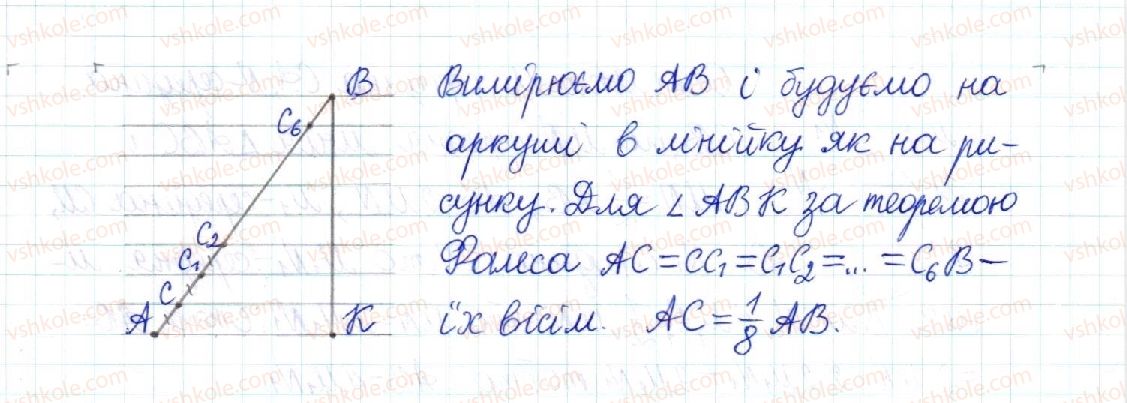 B Вимірюємо AB і будуємо на
C₆ аркуші в лінійку як на ри-
C₂ сунку. Для ∠ABK за теоремою
C₁ Фалеса AC=CC₁=C₁C₂=...=C₆B –
C
A K їх вісім. AC=1/8 AB.
vshkole.com